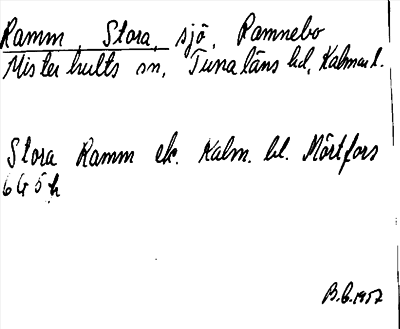 Ramm, Stora, sjö, Ramnebo
Misterhults sn, Tunaläns hd, Kalmar l.
Stora Ramm ek. Kalm. bl. Mörtfors
6G5h
B.G. 1957